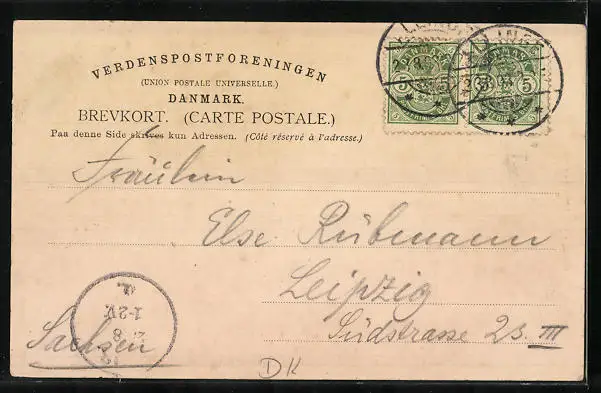 VERDENSPOSTFORENINGEN
(UNION POSTALE UNIVERSELLE.)
DANMARK.
BREVKORT. (CARTE POSTALE.)
Paa denne Side skrives kun Adressen. (Côté réservé à l'adresse.)
DANMARK
5 5
DANMARK
5 5
Fräulein
Else Rübmann
Leipzig
Südstrasse 23 III
Sachsen
1-2V.
8
DK